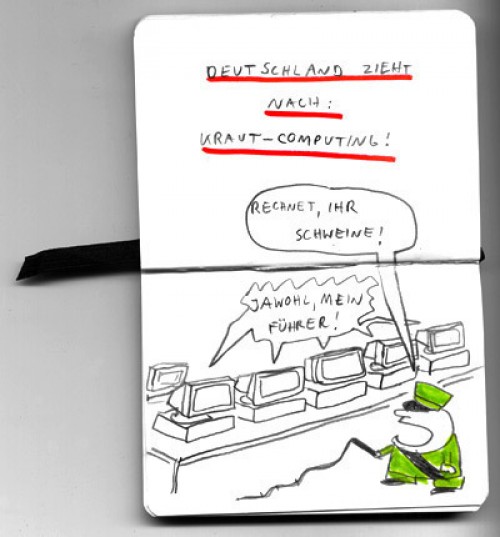 DEUTSCHLAND ZIEHT
NACH:
KRAUT-COMPUTING!
RECHNET, IHR
SCHWEINE!
JAWOHL, MEIN
FÜHRER!